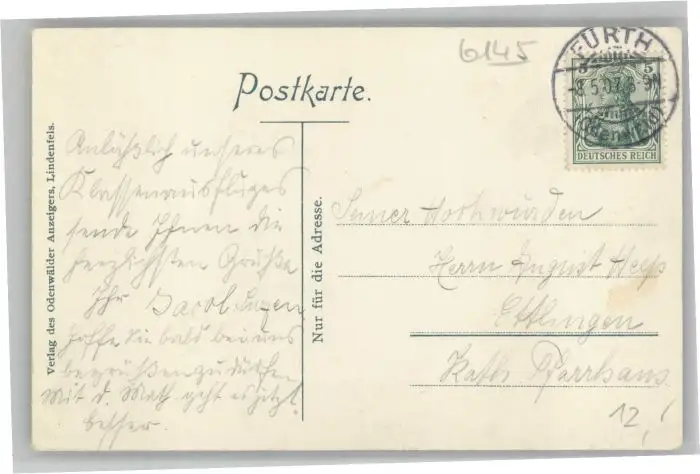 6145
FÜRTH
-8.5.07.
(Odenwald)
5 5
DEUTSCHES REICH
Postkarte.
Verlag des Odenwälder Anzeigers, Lindenfels.
Nur für die Adresse.
Anläßlich unseres
Klassenausfluges
sende Ihnen die
herzlichsten Grüße
Ihr Jacob
hoffe Sie bald bei uns
begrüßen zu dürfen
Mit d. Math geht es jetzt
besser.
Seiner Hochwürden
Herrn August
Ettlingen
Kath Pfarrhaus
12,